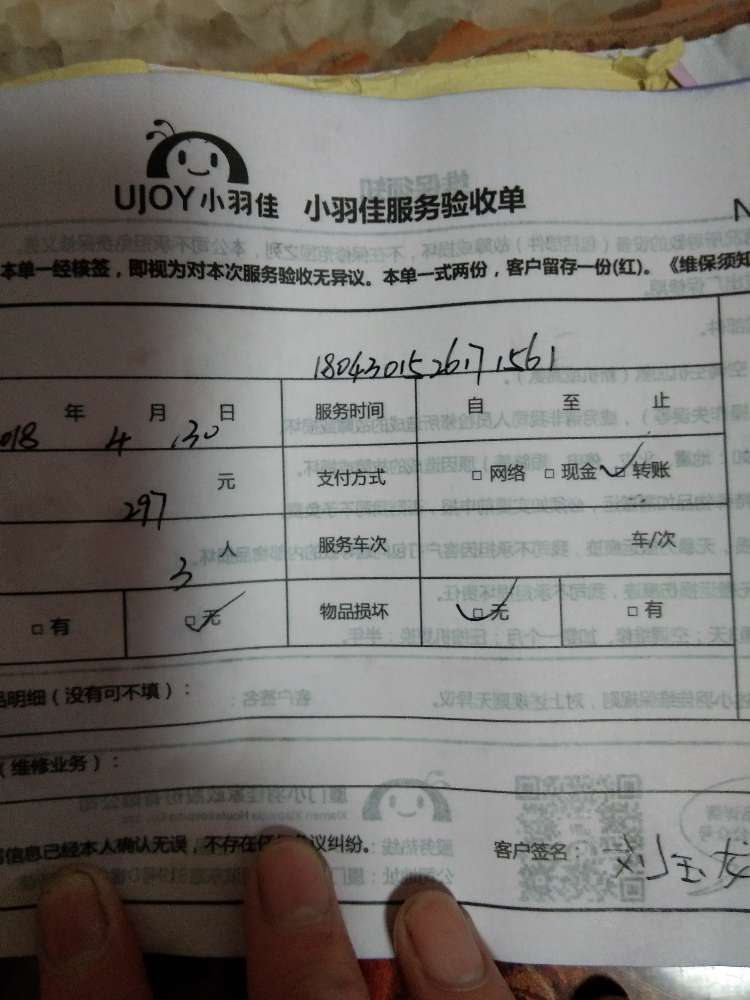 UJOY小羽佳 小羽佳服务验收单
本单一经核签，即视为对本次服务验收无异议。本单一式两份，客户留存一份(红)。《维保须知
180430152617 1561
年 月 日 服务时间 自 至 止
018 4 30
元 支付方式 □ 网络 □ 现金 □ 转账
297
人 服务车次 车/次
3
□ 有 □ 无 物品损坏 □ 无 □ 有
品明细（没有可不填）：
（维修业务）：
信息已经本人确认无误，不存在任何 议纠纷。 客户签名：刘玉龙